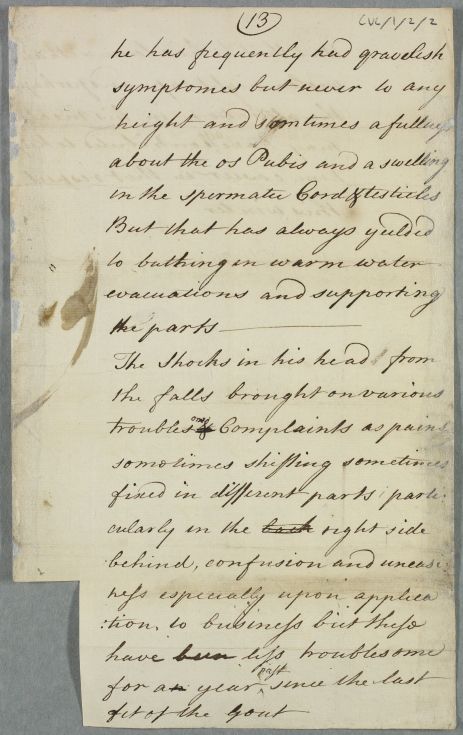 (13)
CVL/1/2/2
he has frequently had gravelish
symptomes but never to any
height and somtimes a fullness
about the os Pubis and a swelling
in the spermatic Cord & testicles
But that has always yeilded
to bathing in warm water
evacuations and supporting
the parts
The shocks in his head from
the falls brought on various
troublesome Complaints as pains
somotimes shifting sometimes
fixed in different parts parti:
cularly in the back right side
behind, confusion and uneasi:
ness especially upon applica
:tion to business but these
have been less troublesome
for a year past since the last
fit of the Gout